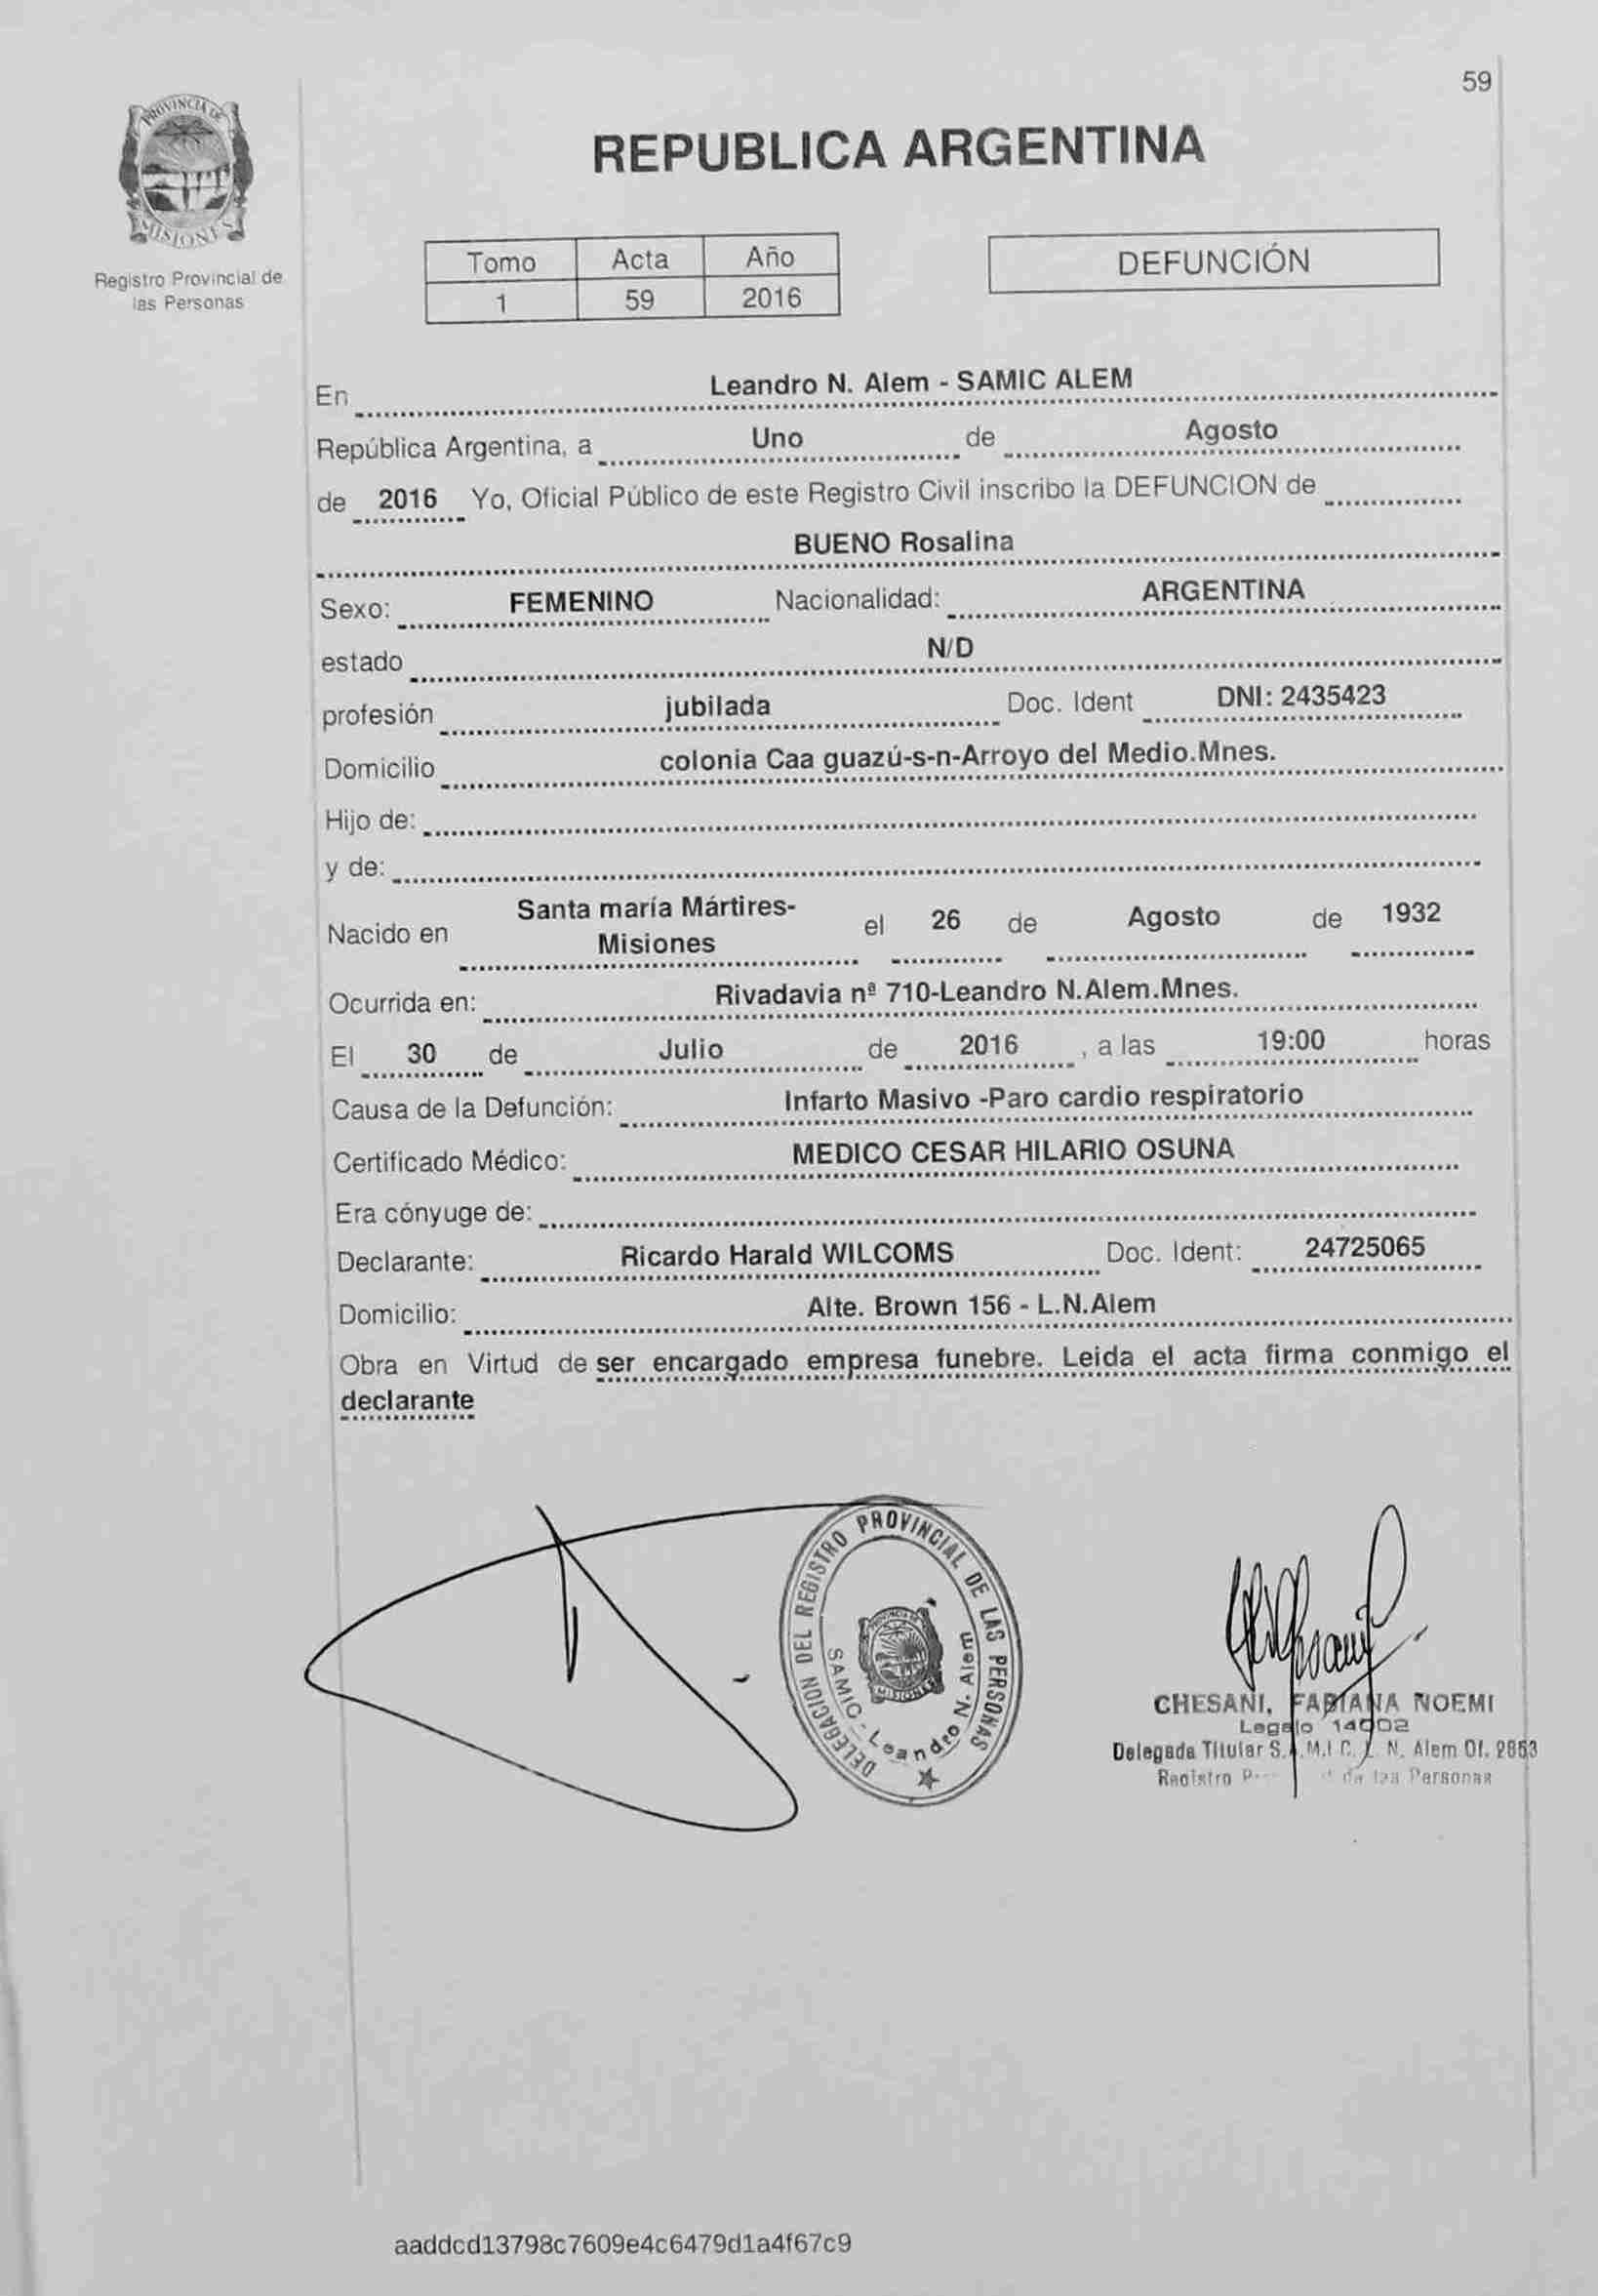 59
PROVINCIA DE
MISIONES
Registro Provincial de
las Personas
REPUBLICA ARGENTINA
Tomo Acta Año
1 59 2016
DEFUNCIÓN
En Leandro N. Alem - SAMIC ALEM
República Argentina, a Uno de Agosto
de 2016 Yo, Oficial Público de este Registro Civil inscribo la DEFUNCION de
BUENO Rosalina
Sexo: FEMENINO Nacionalidad: ARGENTINA
estado N/D
profesión jubilada Doc. Ident DNI: 2435423
Domicilio colonia Caa guazú-s-n-Arroyo del Medio.Mnes.
Hijo de:
y de:
Nacido en Santa maría Mártires-
Misiones el 26 de Agosto de 1932
Ocurrida en: Rivadavia nº 710-Leandro N.Alem.Mnes.
El 30 de Julio de 2016 , a las 19:00 horas
Causa de la Defunción: Infarto Masivo -Paro cardio respiratorio
Certificado Médico: MEDICO CESAR HILARIO OSUNA
Era cónyuge de:
Declarante: Ricardo Harald WILCOMS Doc. Ident: 24725065
Domicilio: Alte. Brown 156 - L.N.Alem
Obra en Virtud de ser encargado empresa funebre. Leida el acta firma conmigo el
declarante
DELEGACION DEL REGISTRO PROVINCIAL DE LAS PERSONAS
SAMIC - Leandro N. Alem
MISIONES
CHESANI, FABIANA NOEMI
Legajo 14002
Delegada Titular S.A.M.I.C. L. N. Alem Of. 2853
Registro de las Personas
aaddcd13798c7609e4c6479d1a4f67c9